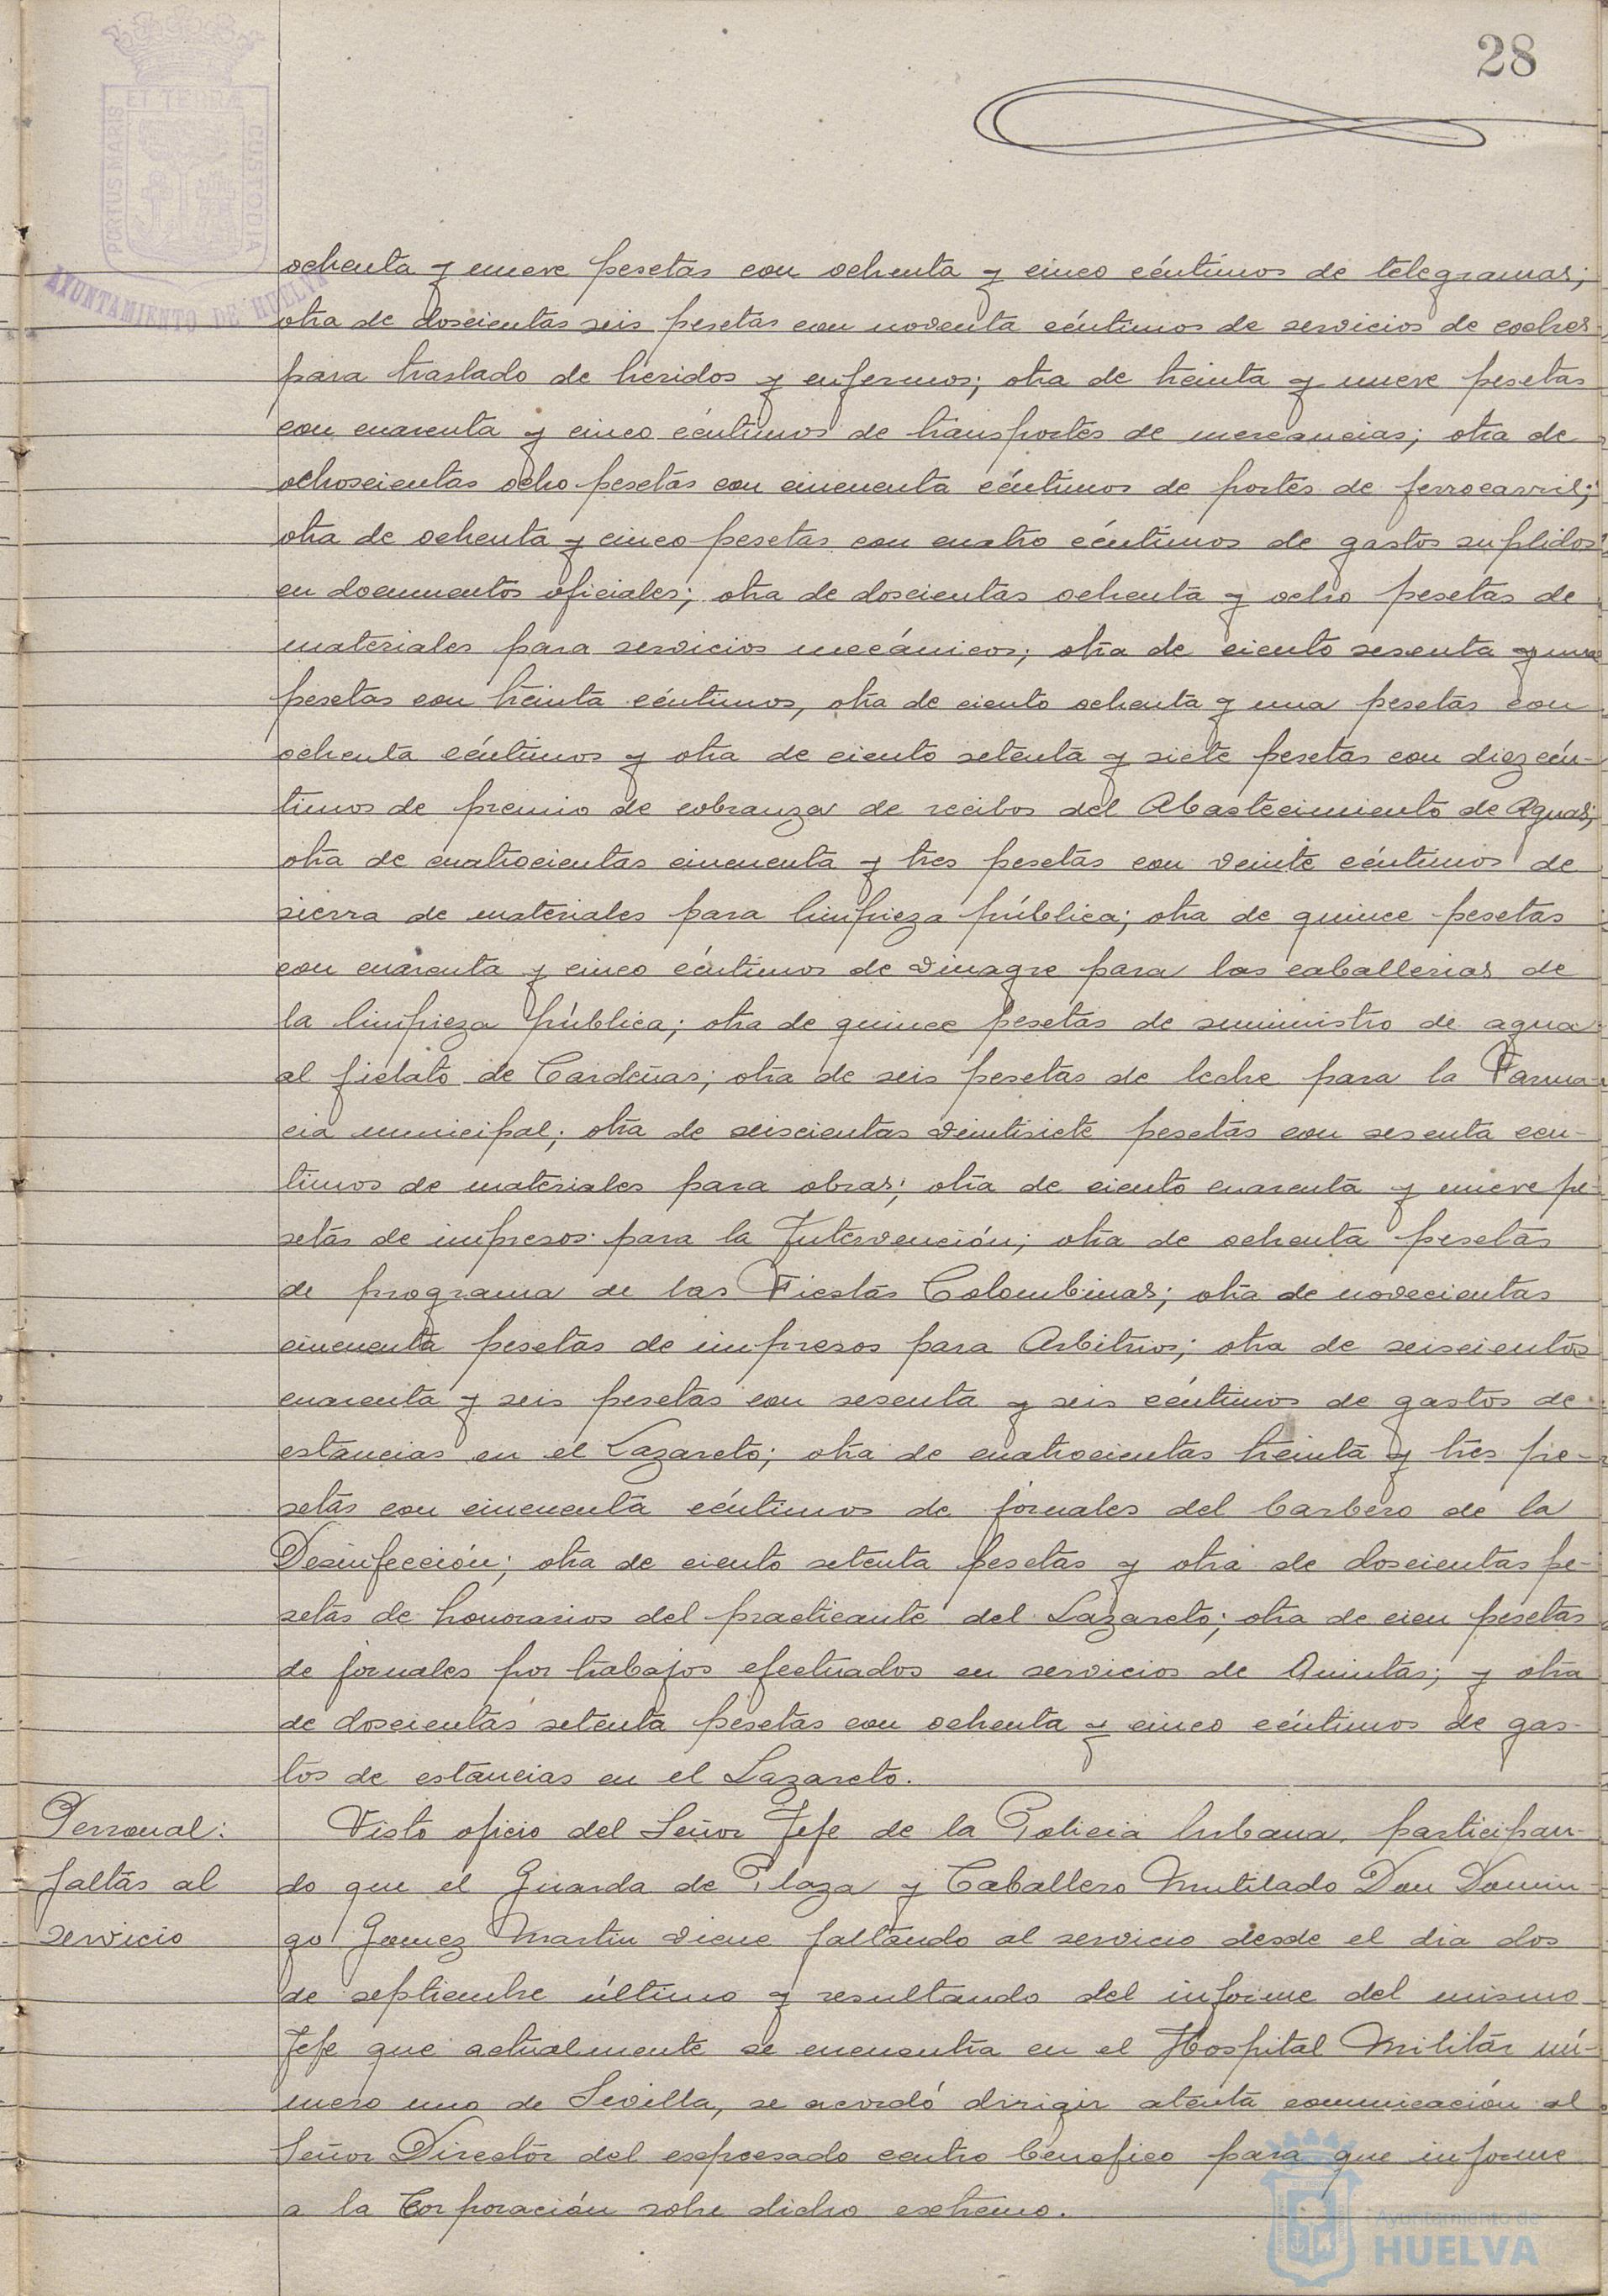 28
ET TERRÆ
PORTUS MARIS
CUSTODIA
AYUNTAMIENTO DE HUELVA
ochenta y nueve pesetas con ochenta y cinco céntimos de telegramas;
otra de doscientas seis pesetas con noventa céntimos de servicios de coches
para traslado de heridos y enfermos; otra de treinta y nueve pesetas
con cuarenta y cinco céntimos de transportes de mercancias; otra de
ochoscientas ocho pesetas con cincuenta céntimos de portes de ferrocarril;
otra de ochenta y cinco pesetas con cuatro céntimos de gastos suplidos
en documentos oficiales; otra de doscientas ochenta y ocho pesetas de
materiales para servicios mecánicos; otra de ciento sesenta y una
pesetas con treinta céntimos, otra de ciento ochenta y una pesetas con
ochenta céntimos y otra de ciento setenta y siete pesetas con diez cén-
timos de premio de cobranza de recibos del Abastecimiento de Aguas;
otra de cuatrocientas cincuenta y tres pesetas con veinte céntimos de
sierra de materiales para limpieza pública; otra de quince pesetas
con cuarenta y cinco céntimos de vinagre para las caballerias de
la limpieza pública; otra de quince pesetas de suministro de agua
al fielato de Cardeñas; otra de seis pesetas de leche para la Farma-
cia municipal; otra de seiscientas veintisiete pesetas con sesenta cen-
timos de materiales para obras; otra de ciento cuarenta y nueve pe-
setas de impresos para la Intervención; otra de ochenta pesetas
de programa de las Fiestas Colombinas; otra de novecientas
cincuenta pesetas de impresos para Arbitrios; otra de seiscientos
cuarenta y seis pesetas con sesenta y seis céntimos de gastos de
estancias en el Lazareto; otra de cuatrocientas treinta y tres pe-
setas con cincuenta céntimos de jornales del barbero de la
Desinfección; otra de ciento setenta pesetas y otra de doscientas pe-
setas de honorarios del practicante del Lazareto; otra de cien pesetas
de jornales por trabajos efectuados en servicios de Quintas; y otra
de doscientas setenta pesetas con ochenta y cinco céntimos de gas-
tos de estancias en el Lazareto.
Personal:
faltas al
servicio
Visto oficio del Señor Jefe de la Policia Urbana, participan-
do que el Guarda de Plaza y Caballero Mutilado Don Domin-
go Gomez Martin viene faltando al servicio desde el dia dos
de septiembre último y resultando del informe del mismo
Jefe que actualmente se encuentra en el Hospital Militar nú-
mero uno de Sevilla, se acordó dirigir atenta comunicación al
Señor Director del expresado centro benefico para que informe
a la Corporación sobre dicho extremo.
Ayuntamiento de
HUELVA